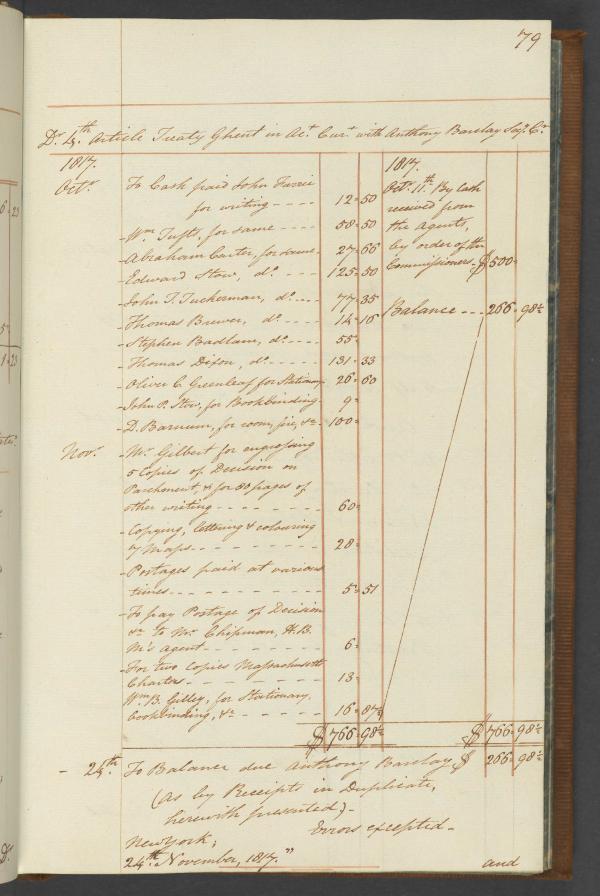 79
Dr. 4th. Article Treaty Ghent in Act. Curt. with Anthony Barclay Esqr. Cr.
1817.
Octr. To Cash paid John
for writing ---- 12 " 50
- Wm. Tufts, for same ---- 58 " 50
- Abraham Carter, for same - 27 " 66
- Edward Stow, do. ---- 125 " 50
- John T. Tuckerman, do. ---- 77 " 35
- Thomas Brewer, do. ---- 14 " 16
- Stephen Badlam, do. ---- 55 "
- Thomas Dixon, do. ---- 131 " 33
- Oliver C. Greenleaf for Stationary 26 " 60
- John P. Stow, for Bookbinding - 9 "
- D. Barnum, for room, fire, &c. - 100 "
Novr. - Mr. Gilbert for engrossing
5 Copies of Decision on
Parchment, & for 80 pages of
other writing ---- 60 "
- Copying, lettering & colouring
7 Maps ---- 28 "
- Postages paid at various
times ---- 5 " 51
- To pay Postage of Decision
&c. to Mr. Chipman, H.B.
M's agent ---- 6 "
- For two Copies Massachusetts
Charters ---- 13 "
Wm. B. Gilley, for Stationary,
bookbinding, &c. ---- 16 " 87½
$ 766 " 98½
1817.
Octr. 11th. By Cash
received from
the Agents,
by order of the
Commissioners - $ 500 "
Balance --- 266 " 98½
$ 766 " 98½
- 24th. To Balance due Anthony Barclay $ 266 " 98½
(As by Receipts in Duplicate,
herewith presented) -
Errors excepted -
New York,
24th. November, 1817. "
and
6 " 23
5 "
1 " 23
Dr.